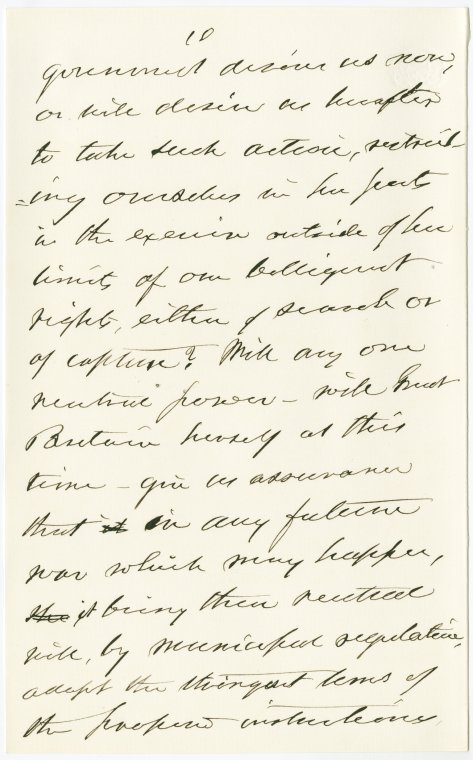 10
government desire us now,
or will desire us hereafter
to take such action, restrict
=ing ourselves in her ports
in the exercise outside of her
limits of our belligerent
rights, either of search or
of capture? Will any one
neutral power – will Great
Britain herself at this
time – give us assurance
that it in any future
war which may happen,
she it being then neutral
will, by municipal regulation,
adopt the stringent terms of
the proposed instructions